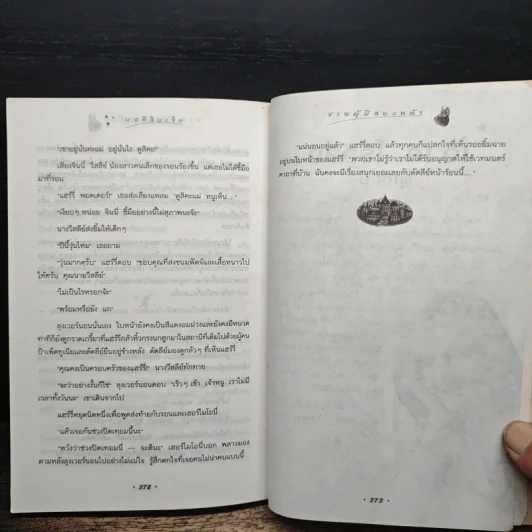 "เขาอยู่นั่นค่ะแม่ อยู่นั่นไง ดูสิคะ!"
เสียงจินนี่ วีสลีย์ น้องสาวคนเล็กของรอนร้องขึ้น แต่เธอไม่ได้ชี้มือ
มาที่รอน
"แฮร์รี่ พอตเตอร์!" เธอส่งเสียงแหลม "ดูสิคะแม่ หนูเห็น..."
"เงียบๆ หน่อย จินนี่ ชี้มืออย่างนี้ไม่สุภาพนะจ๊ะ"
นางวีสลีย์ส่งยิ้มให้เด็กๆ
"ปีนี้วุ่นไหม" เธอถาม
"วุ่นมากครับ" แฮร์รี่ตอบ "ขอบคุณที่ส่งขนมฟัดจ์และเสื้อหนาวไป
ให้ครับ คุณนายวีสลีย์"
"ไม่เป็นไรหรอกจ้ะ"
"พร้อมหรือยัง แก"
ลุงเวอร์นอนนั่นเอง ใบหน้ายังคงเป็นสีแดงอมม่วงและยังคงมีหนวด
ท่าทีก็ยังดูกราดเกรี้ยวที่แฮร์รี่กล้าหิ้วกรงนกฮูกมาในสถานีที่เต็มไปด้วยผู้คน
ป้าเพ็ตทูเนียและดัดลีย์ยืนอยู่ข้างหลัง ดัดลีย์มองดูกลัวๆ ที่เห็นแฮร์รี่
"คุณคงเป็นครอบครัวของแฮร์รี่" นางวีสลีย์ทักทาย
"จะว่าอย่างงั้นก็ใช่" ลุงเวอร์นอนตอบ "เร็วๆ เข้า เจ้าหนู เราไม่มี
เวลาทั้งวันนะ" เขาเดินจากไป
แฮร์รี่หยุดนิดหนึ่งเพื่อพูดส่งท้ายกับรอนและเฮอร์ไมโอนี่
"แล้วเจอกันช่วงปิดเทอมนี้นะ"
"หวังว่าช่วงปิดเทอมนี้ — จะดีนะ" เฮอร์ไมโอนี่บอก พลางมอง
ตามหลังลุงเวอร์นอนไปอย่างไม่แน่ใจ รู้สึกตกใจที่เจอคนไม่น่าคบแบบนี้
• 372 •
ชายผู้มีสองหน้า
"แน่นอนอยู่แล้ว" แฮร์รี่ตอบ แล้วทุกคนก็แปลกใจที่เห็นรอยยิ้มฉาย
อยู่บนใบหน้าของแฮร์รี่ "พวกเขาไม่รู้ว่าเราไม่ได้รับอนุญาตให้ใช้เวทมนตร์
คาถาที่บ้าน ฉันคงจะมีเรื่องสนุกเยอะเลยกับดัดลีย์หน้าร้อนนี้..."
• 373 •